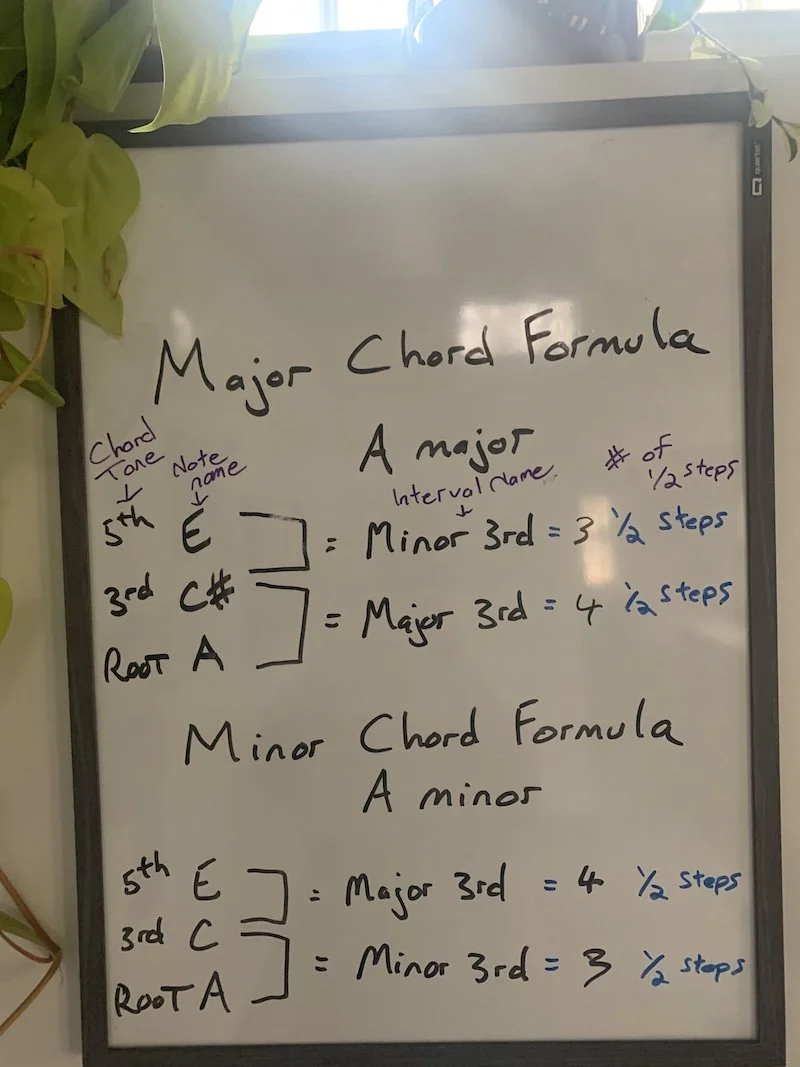 Major Chord Formula
A major
Chord Tone
↓
Note name
↓
Interval Name
↓
# of 1/2 steps
5th E ] = Minor 3rd = 3 1/2 steps
3rd C# ] = Major 3rd = 4 1/2 steps
ROOT A
Minor Chord Formula
A minor
5th E ] = Major 3rd = 4 1/2 steps
3rd C ] = Minor 3rd = 3 1/2 steps
ROOT A